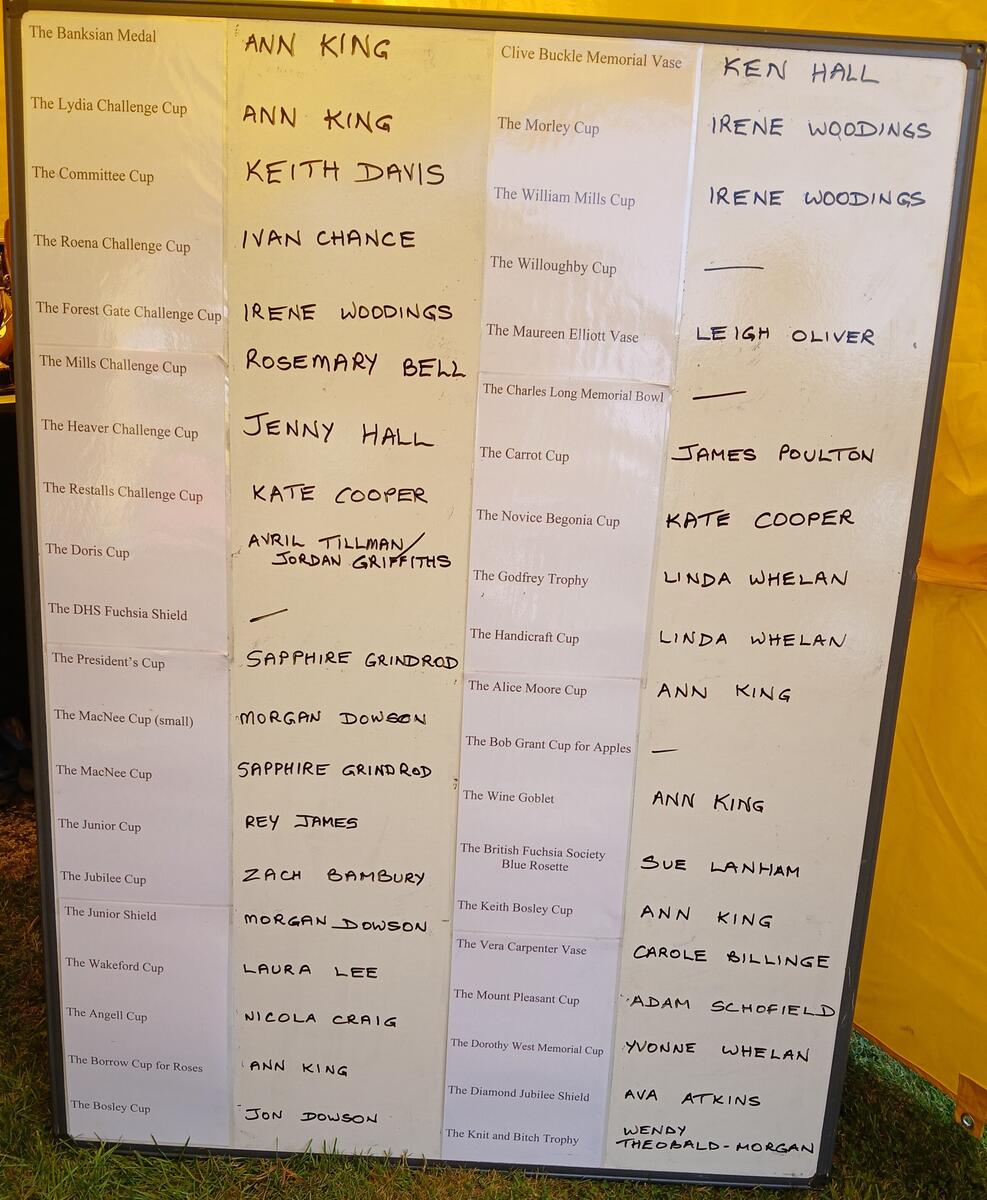 The Banksian Medal ANN KING
The Lydia Challenge Cup ANN KING
The Committee Cup KEITH DAVIS
The Roena Challenge Cup IVAN CHANCE
The Forest Gate Challenge Cup IRENE WOODINGS
The Mills Challenge Cup ROSEMARY BELL
The Heaver Challenge Cup JENNY HALL
The Restalls Challenge Cup KATE COOPER
The Doris Cup AVRIL TILLMAN/
JORDAN GRIFFITHS
The DHS Fuchsia Shield —
The President's Cup SAPPHIRE GRINDROD
The MacNee Cup (small) MORGAN DOWSON
The MacNee Cup SAPPHIRE GRINDROD
The Junior Cup REY JAMES
The Jubilee Cup ZACH BAMBURY
The Junior Shield MORGAN DOWSON
The Wakeford Cup LAURA LEE
The Angell Cup NICOLA CRAIG
The Borrow Cup for Roses ANN KING
The Bosley Cup JON DOWSON
Clive Buckle Memorial Vase KEN HALL
The Morley Cup IRENE WOODINGS
The William Mills Cup IRENE WOODINGS
The Willoughby Cup —
The Maureen Elliott Vase LEIGH OLIVER
The Charles Long Memorial Bowl —
The Carrot Cup JAMES POULTON
The Novice Begonia Cup KATE COOPER
The Godfrey Trophy LINDA WHELAN
The Handicraft Cup LINDA WHELAN
The Alice Moore Cup ANN KING
The Bob Grant Cup for Apples —
The Wine Goblet ANN KING
The British Fuchsia Society
Blue Rosette SUE LANHAM
The Keith Bosley Cup ANN KING
The Vera Carpenter Vase CAROLE BILLINGE
The Mount Pleasant Cup ADAM SCHOFIELD
The Dorothy West Memorial Cup YVONNE WHELAN
The Diamond Jubilee Shield AVA ATKINS
The Knit and Bitch Trophy WENDY
THEOBALD-MORGAN